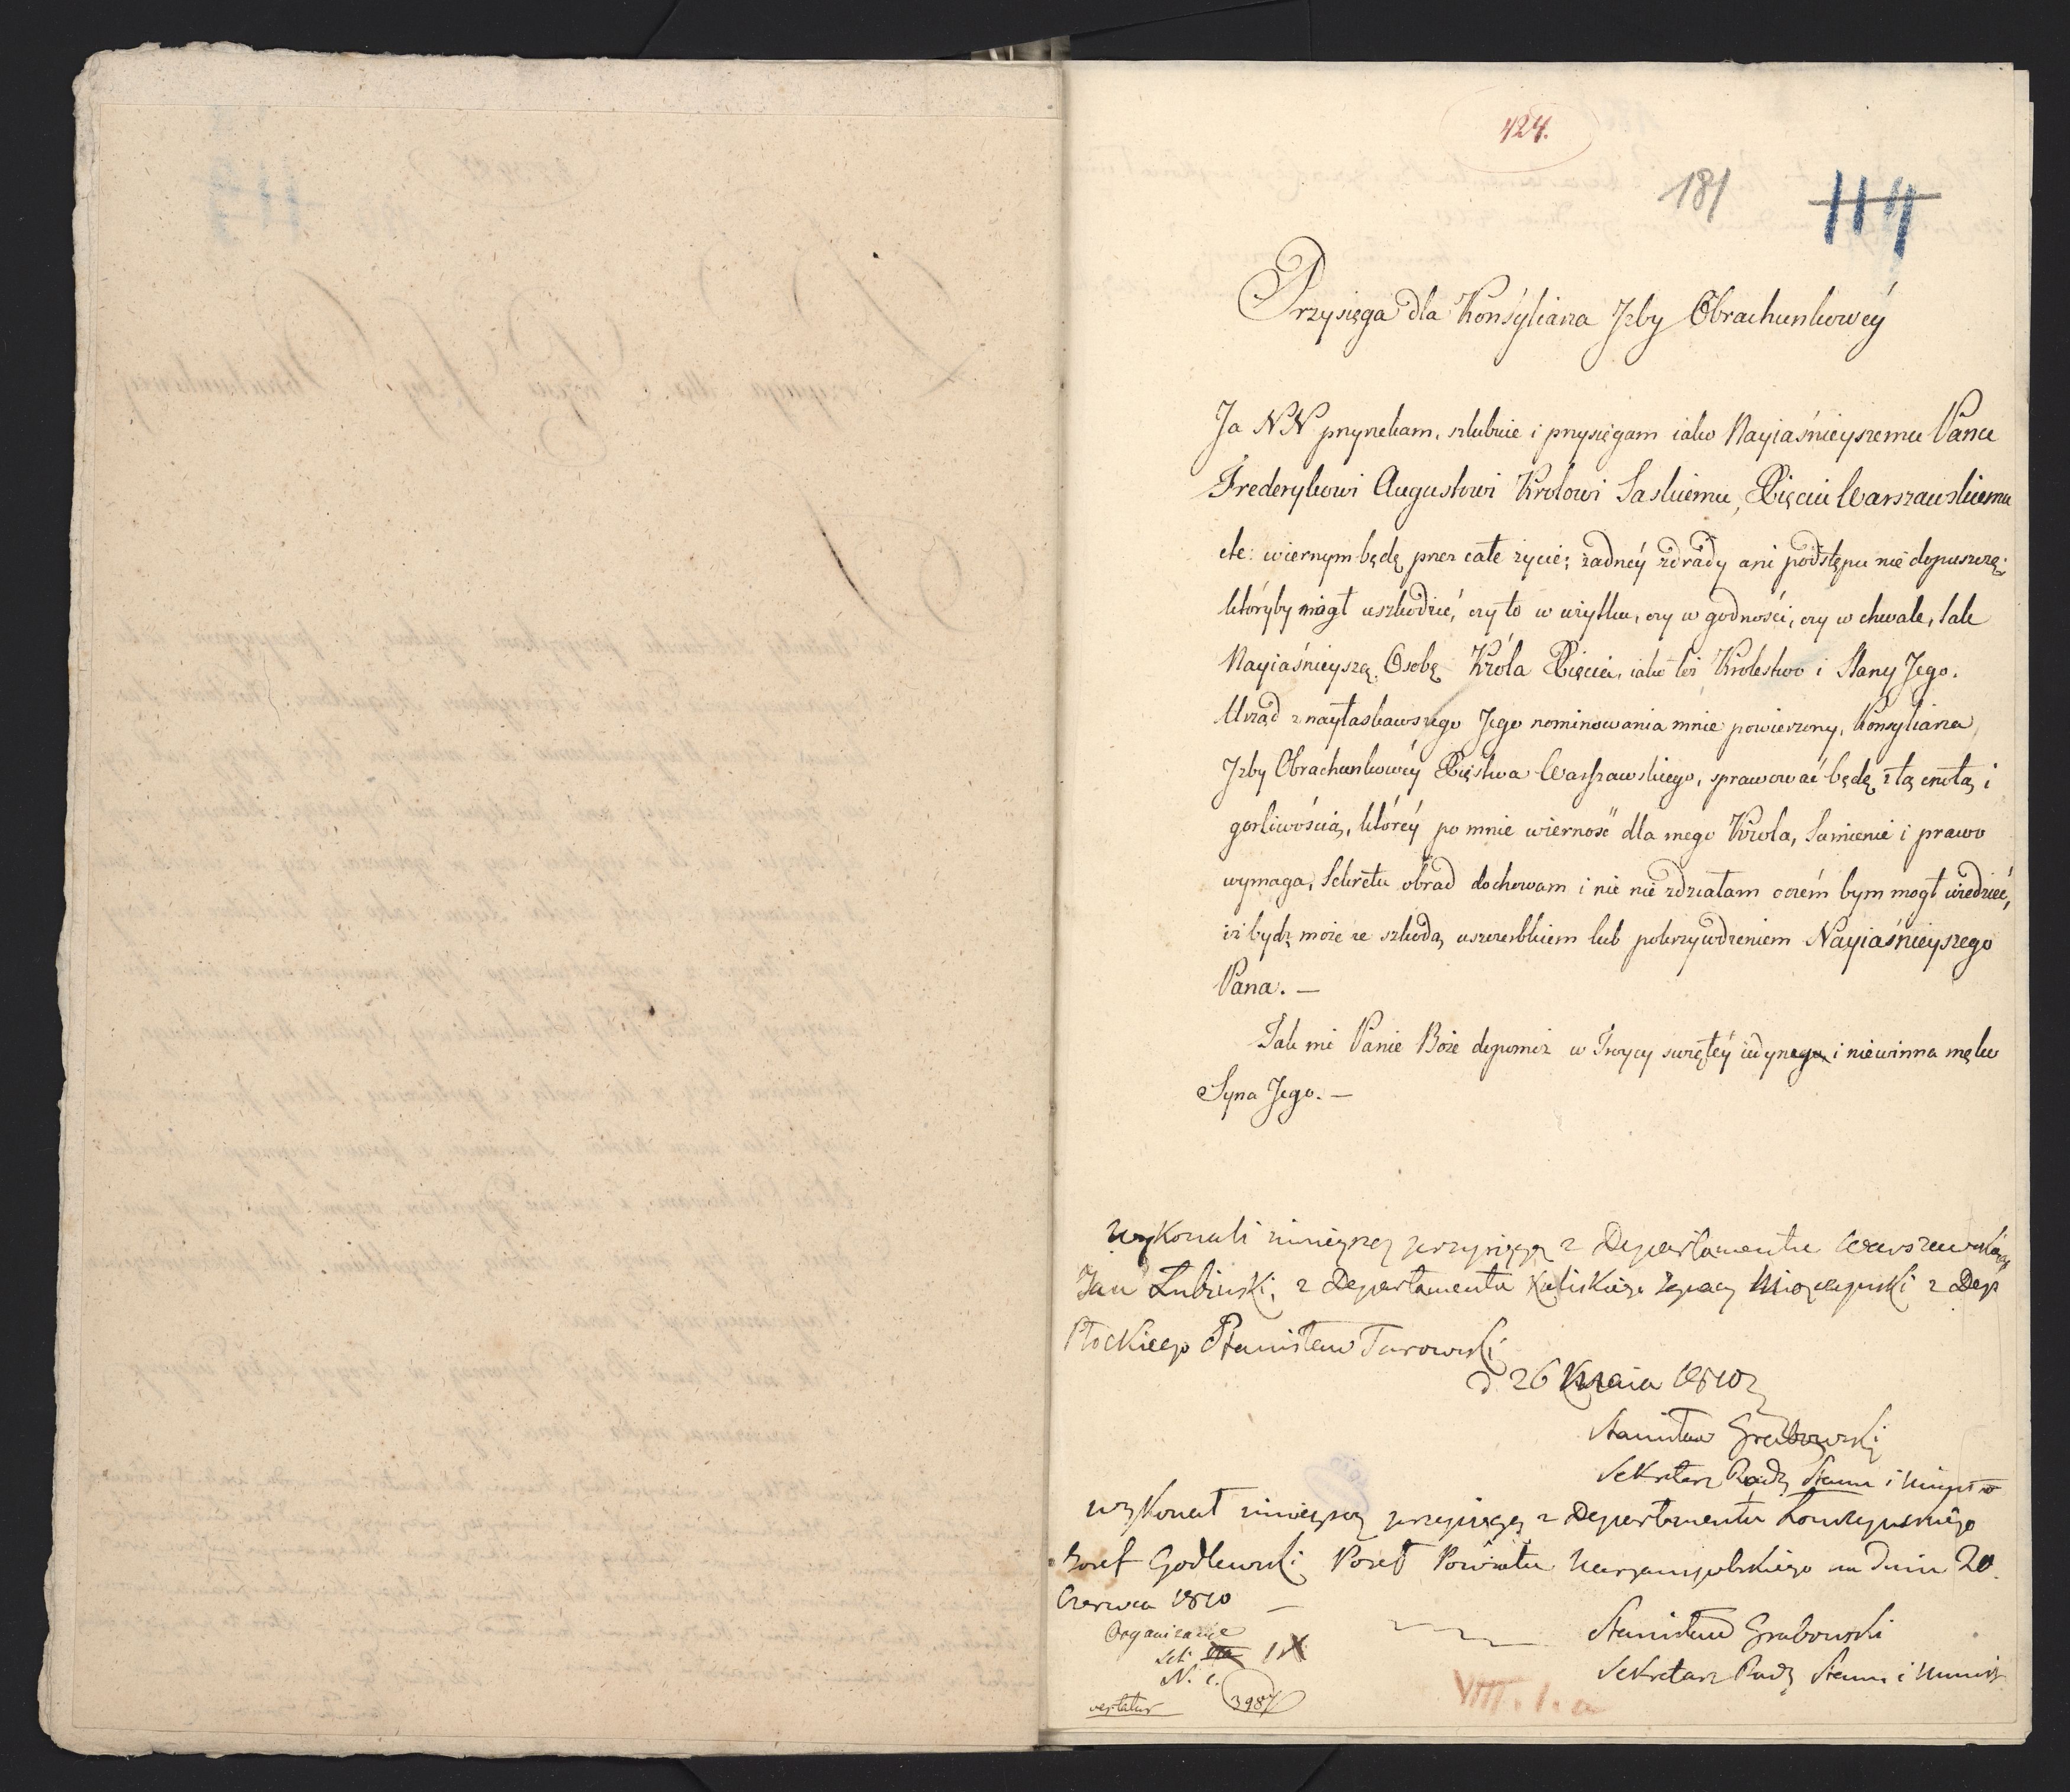 424.
181
114
Przysięga dla Konsyliarza Jzby Obrachunkowéy
Ja NN przyrzekam, szlubuie i przysięgam iako Nayiaśnieyszemu Panu
Frederykowi Augustowi Krolowi Saskiemu, Xięciu Warszawskiemu
etc: wiernym będę przez całe życie; żadnéy zdrady ani podstępu nie dopuszczę;
któryby mógł uszkodzić, czy to w użytku, czy w godności, czy w chwale, tak
Nayiaśnieyszą Osobę Króla Xięcia, iako też Krolestwo i Stany Jego.
Urząd z nayłaskawszego Jego nominowania mnie powierzony, Konsyliarza
Jzby Obrachunkowéy Xięstwa Warszawskiego, sprawować będę z tą cnotą i
gorliwością, któréy po mnie wierność dla mego Króla, Sumienie i prawo
wymaga, Sekretu obrad dochowam i nic nie zdziałam oczém bym mogł wiedzieć,
iż bydź może ze szkodą uszczerbkiem lub pokrzywdzeniem Nayiaśnieyszego
Pana. —
Tak mi Panie Boże dopomóż w Troycy swiętéy iedynego, i niewinna męka
Syna Jego. —
Wykonali ninieyszą przysięgę z Departamentu Warszawskiego
Jan Łubieński, z Departamentu Kaliskiego Ignacy Miączyński z Dep
Płockiego Stanisław Turowski
d. 26 Maia 1810
Stanisław Grabowski
Sekretarz Rady Stanu i Minist
Wykonał ninieyszą przysięgę z Departamentu Łomżyńskiego
Jozef Godlewski Poseł Powiatu Maryampolskiego na dniu 20.
Czerwca 1810 —
Organizacye
Lit 1
N. 1.
vertatur
3987
Stanisław Grabowski
Sekretarz Rady Stanu i Minist
VIII. 1. a